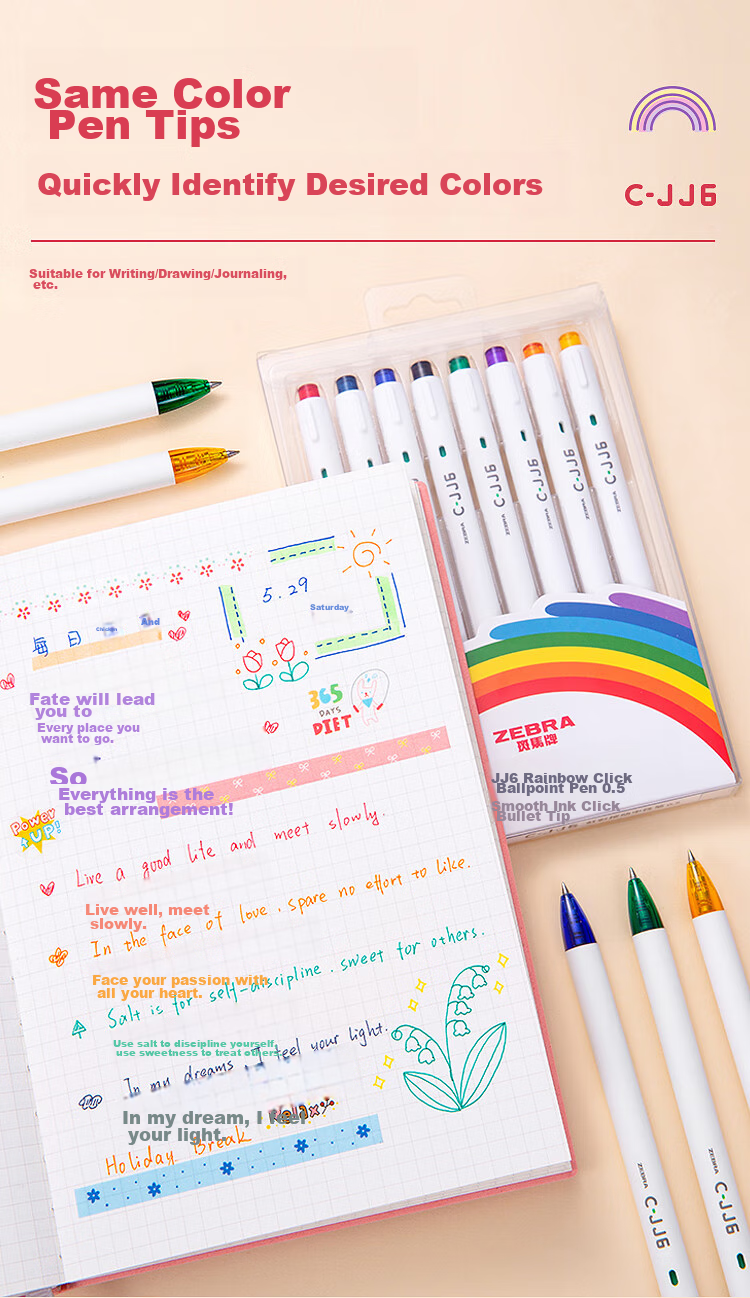 Same Color
Pen Tips
Quickly Identify Desired Colors
C-JJ6
Suitable for Writing/Drawing/Journaling,
etc.
C-JJ6
ZEBRA
C-JJ6
ZEBRA
C-JJ6
ZEBRA
C-JJ6
ZEBRA
C-JJ6
ZEBRA
5.29
Saturday
每日
Chicken
And
365
DAYS
DIET
Fate will lead
you to
Every place you
want to go.
So
Everything is the
best arrangement!
Power
UP!
ZEBRA
斑馬牌
JJ6 Rainbow Click
Ballpoint Pen 0.5
Smooth Ink Click
Bullet Tip
Live a good life and meet slowly.
Live well, meet
slowly.
In the face of love . spare no effort to like.
Face your passion with
all your heart.
Salt is for self-discipline . sweet for others.
Use salt to discipline yourself,
use sweetness to treat others
In my dreams , I feel your light.
In my dream, I feel
your light.
Relax
Holiday Break
ZEBRA C-JJ6
ZEBRA C-JJ6